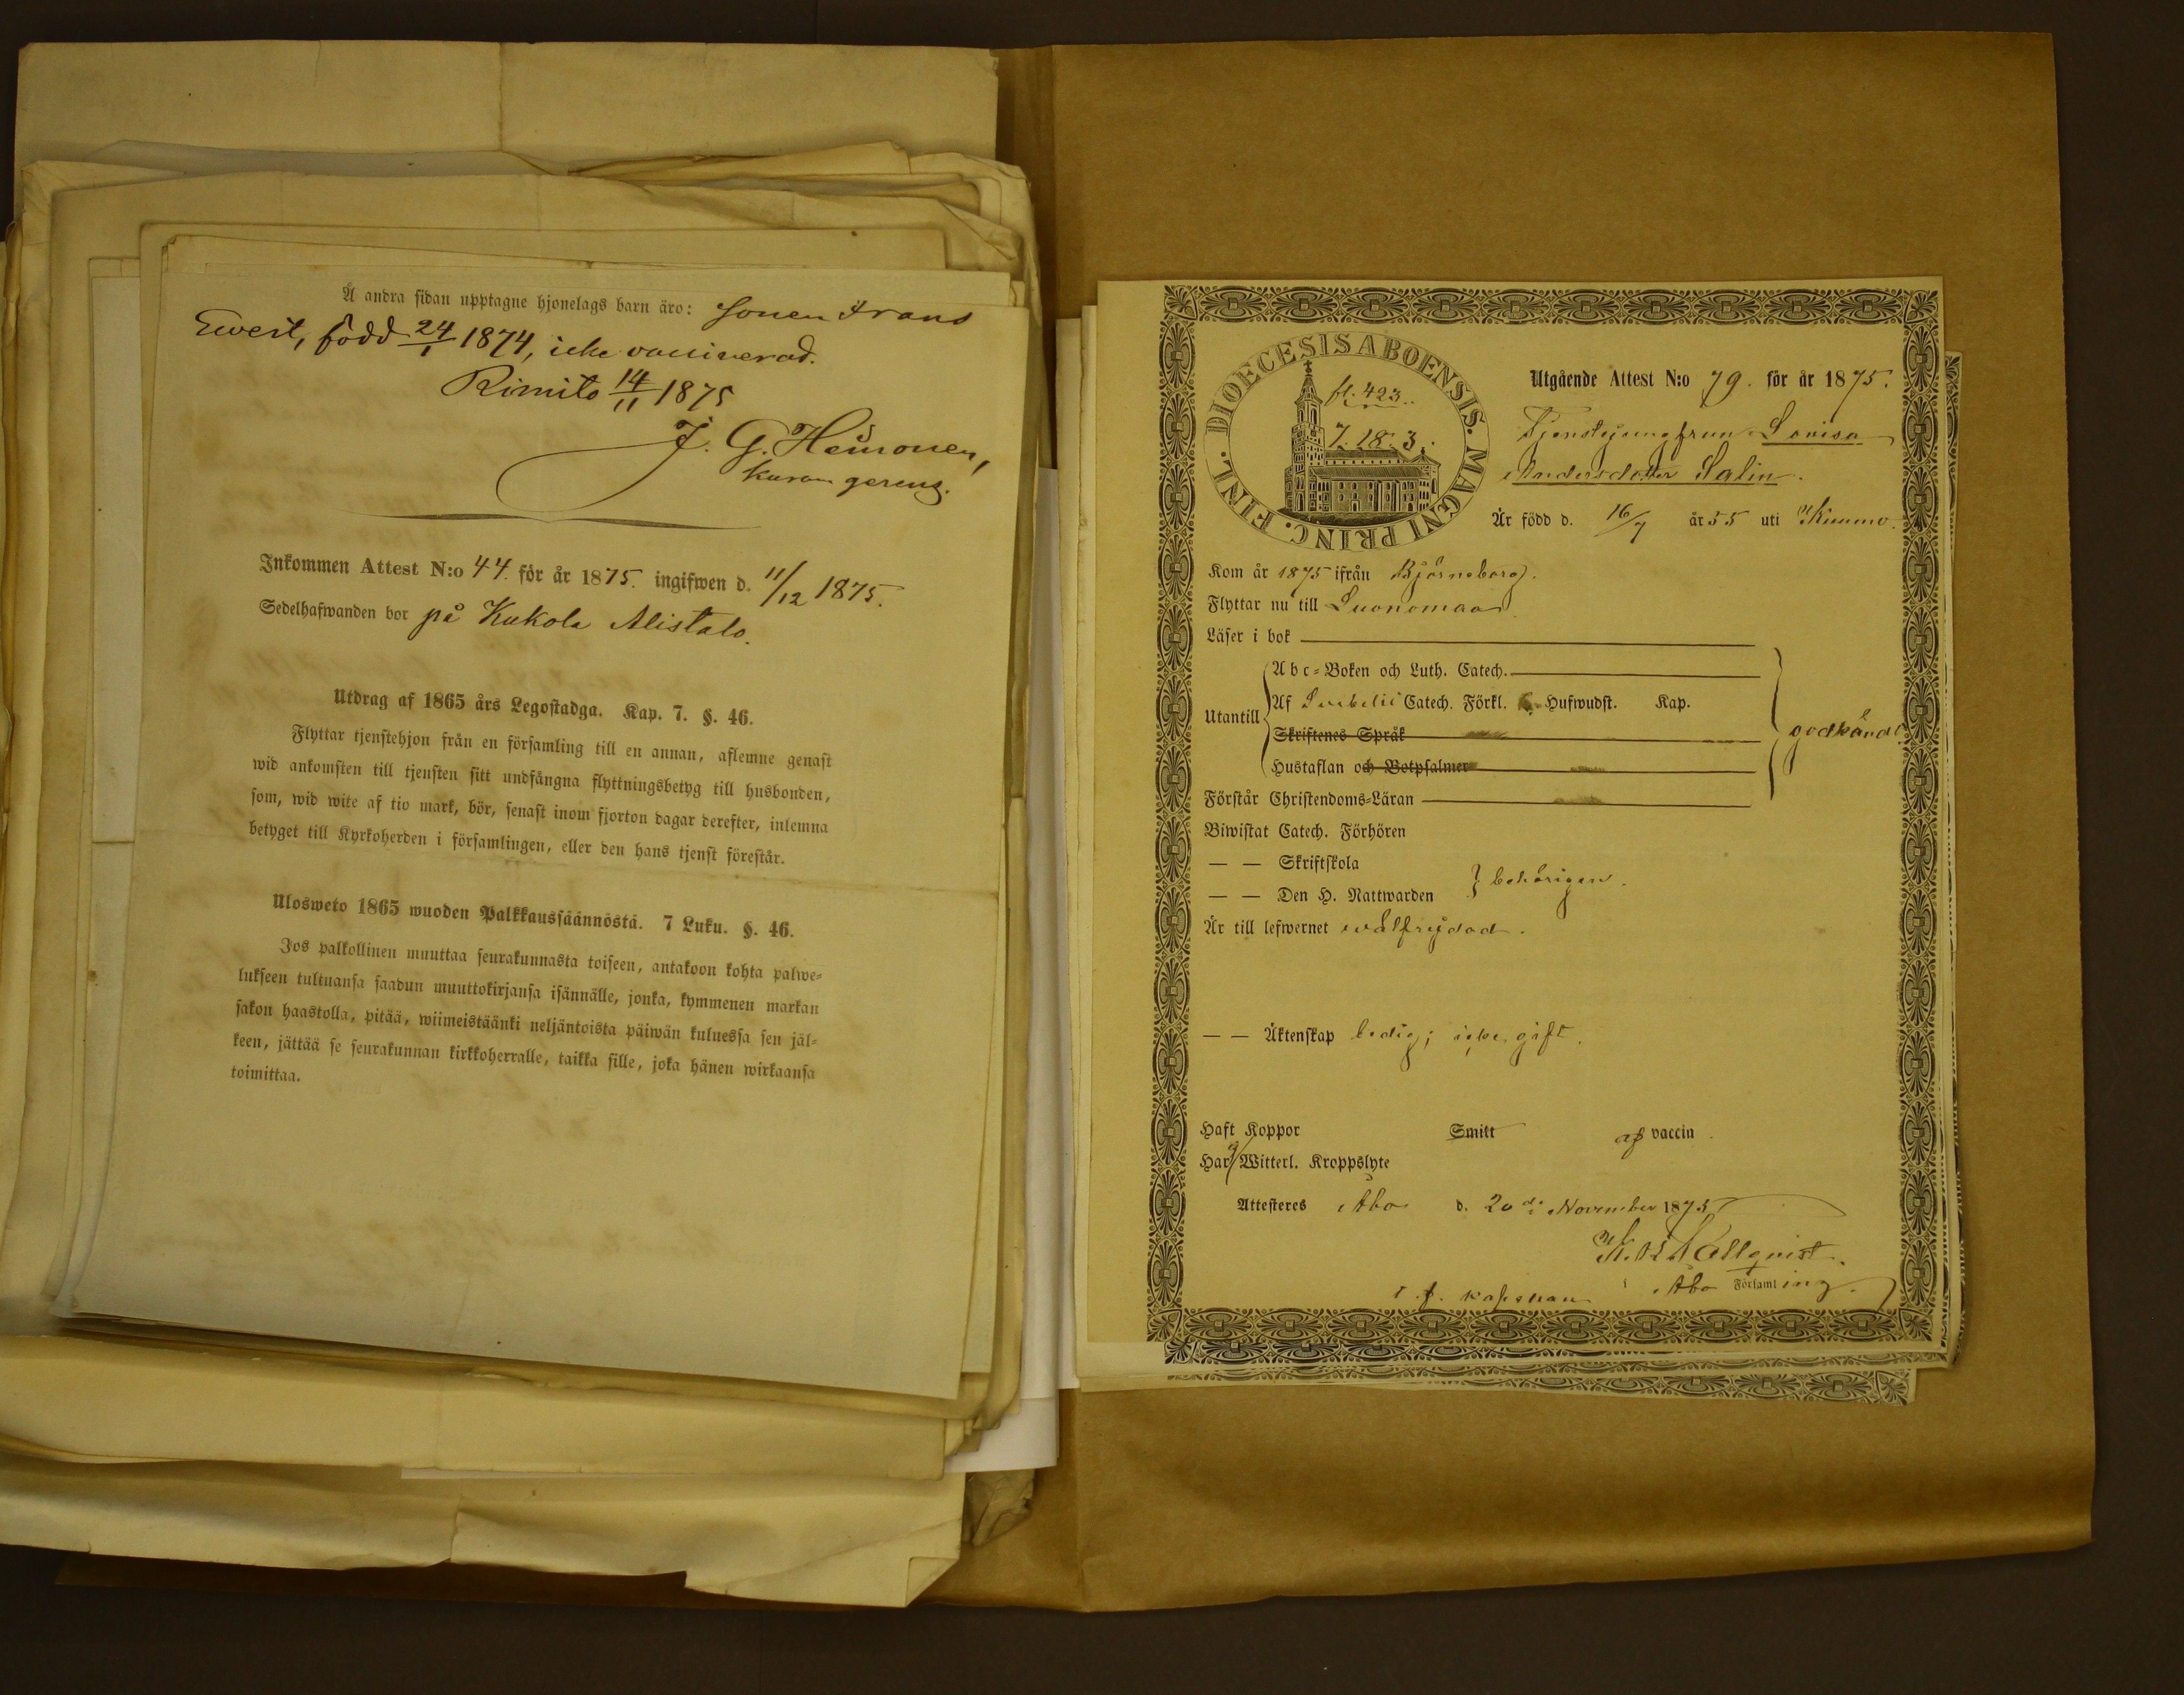 Å andra sidan upptagne hjonelags barn äro: Sonen Frans
Evert, född 24/1 1874, icke vaccinerad.
Rimito 14/11 1875
J. G. Heinonen,
Inkommen Attest N:o 44. för år 1875. ingifwen d. 11/12 1875.
Sedelhafwanden bor på Kukola Alistalo.
Utdrag af 1865 års Legostadga. Kap. 7. §. 46.
Flyttar tjenstehjon från en församling till en annan, aflemne genast
wid ankomsten till tjensten sitt undfångna flyttningsbetyg till husbonden,
som, wid wite af tio mark, bör, senast inom fjorton dagar derefter, inlemna
betyget till Kyrkoherden i församlingen, eller den hans tjenst förestår.
Ulosweto 1865 wuoden Palkkaussäännöstä. 7 Luku. §. 46.
Jos palkollinen muuttaa seurakunnasta toiseen, antakoon kohta palwe=
lukseen tultuansa saadun muuttokirjansa isännälle, jonka, kymmenen markan
sakon haastolla, pitää, wiimeistäänki neljäntoista päiwän kuluessa sen jäl=
keen, jättää se seurakunnan kirkkoherralle, taikka sille, joka hänen wirkaansa
toimittaa.
DIOECESIS ABOENSIS. MAGNI PRINC. FINL.
fl. 423.
7. 18. 3.
Utgående Attest N:o 79. för år 1875.
Tjenstejungfrun Lovisa
Andersdotter Salin.
Är född d. 16/7 år 55 uti Kiumo.
Kom år 1875 ifrån Björneborg.
Flyttar nu till Luonomaa
Läser i bok
Abc=Boken och Luth. Catech.
Utantill Af Svebelii Catech. Förkl. Hufwudst. Kap.
Skriftenes Språk
godkändt
Hustaflan och Botpsalmer
Förstår Christendoms=Läran
Biwistat Catech. Förhören
— — Skriftskola
— — Den H. Nattwarden
behörigen.
Är till lefwernet välfrejdad.
— — Äktenskap ledig; icke gift.
Haft Koppor Smitt af vaccin
Har ej Witterl. Kroppslyte
Attesteres Åbo d. 20de November 1875
Hallquist.
i Åbo Församling.